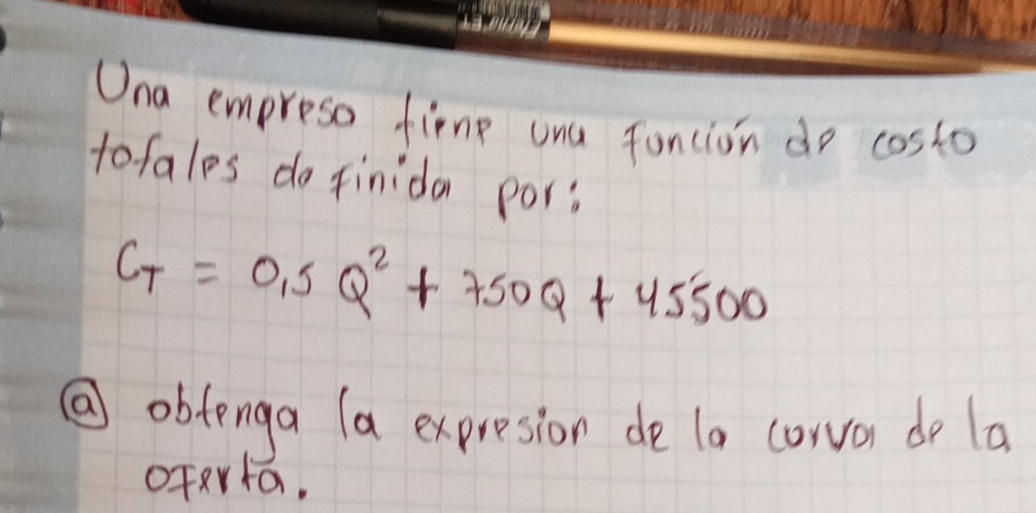 Una empresa tiene una función de costo
totales definida por:
C_T = 0,5 Q² + 750Q + 45500
ⓐ obtenga la expresion de la curva de la
oferta.